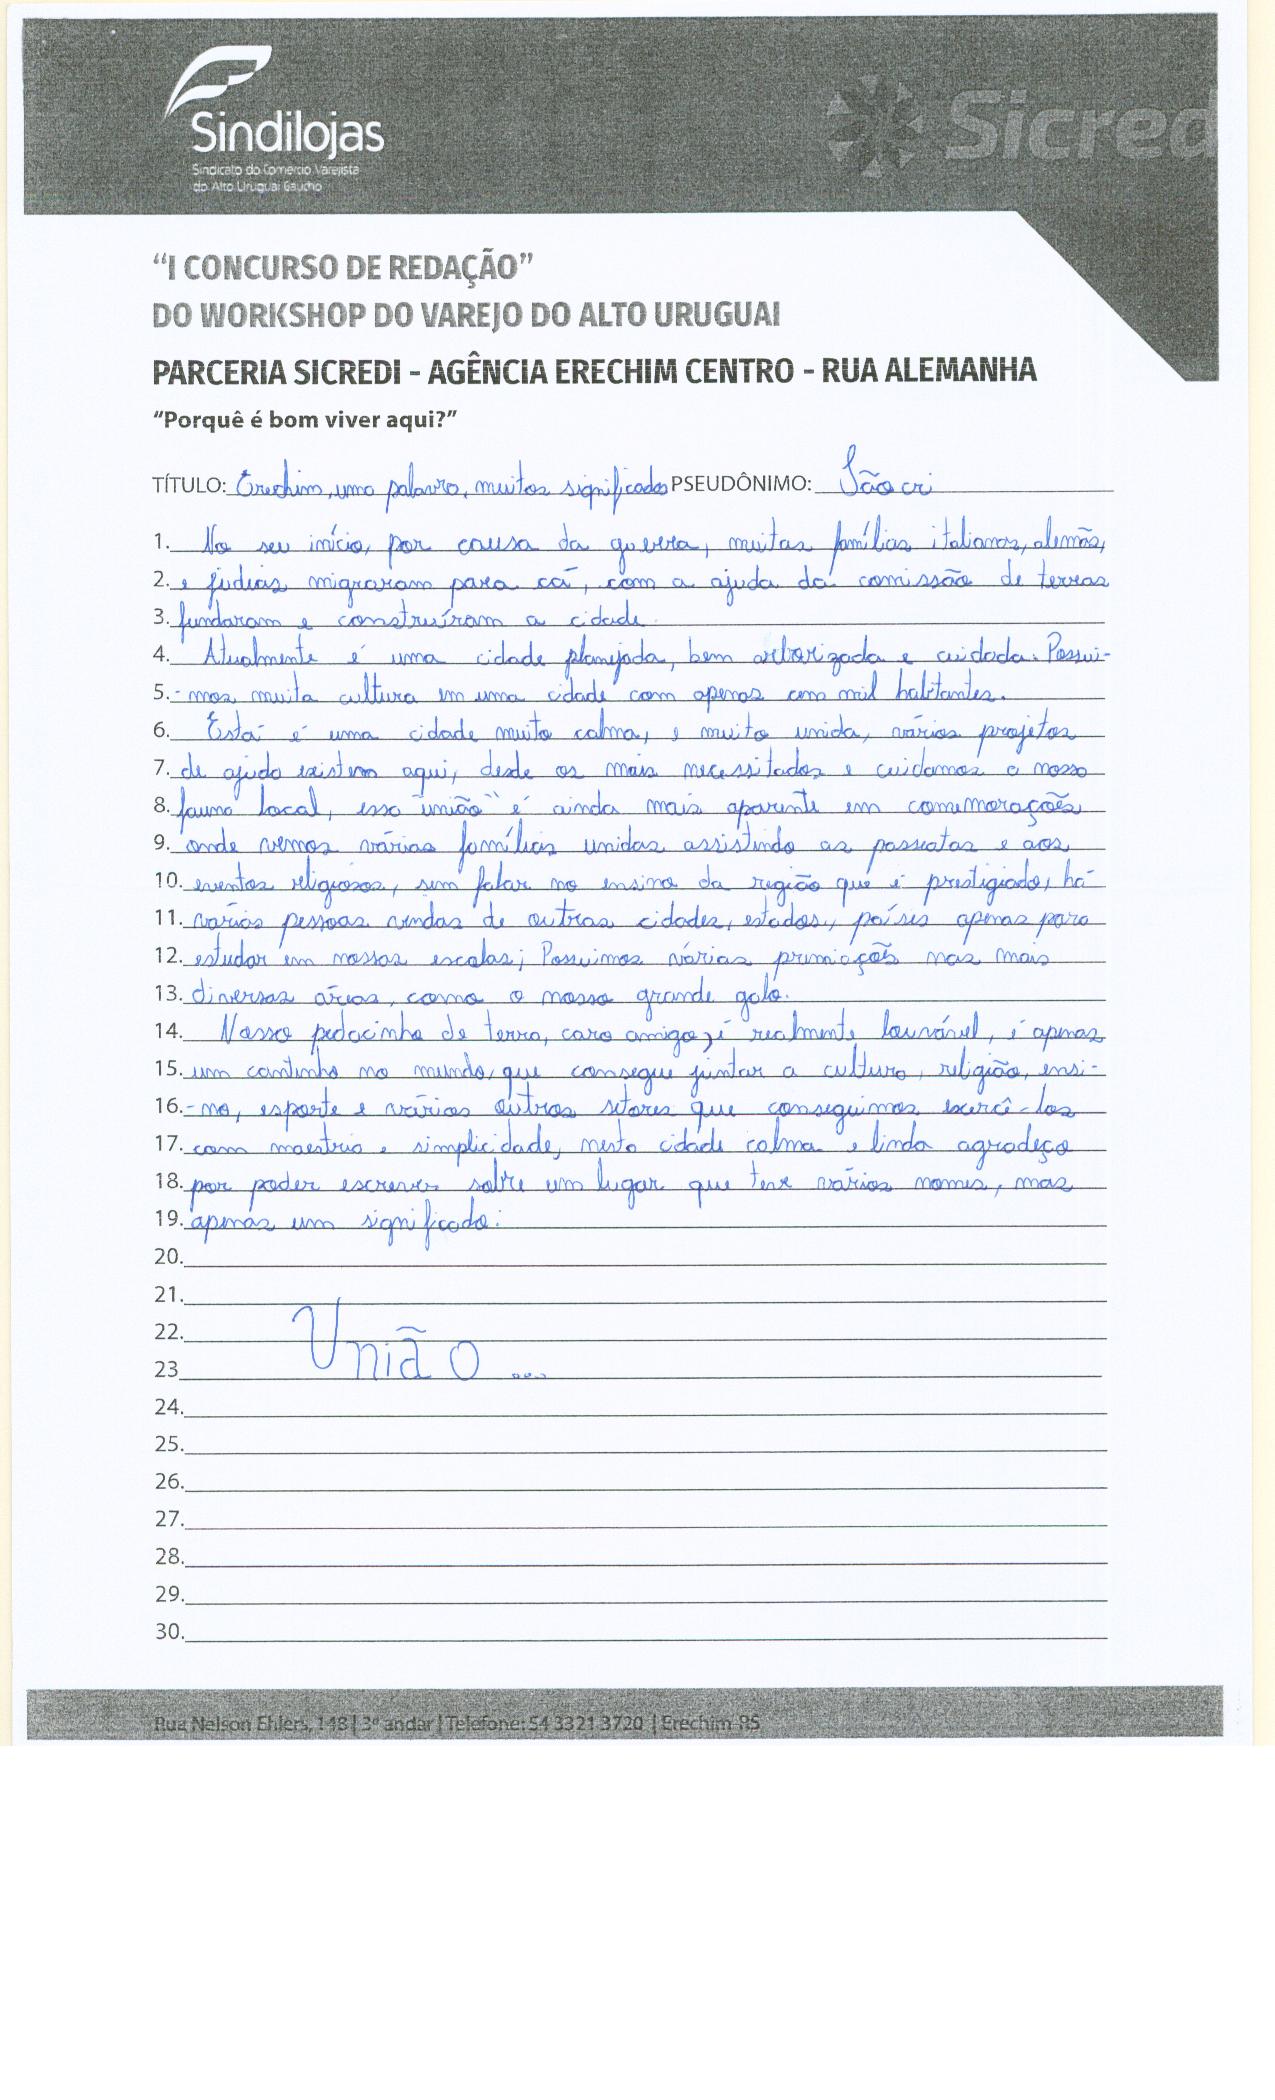 Sindilojas
Sindicato do Comércio Varejista
do Alto Uruguai Gaúcho
Sicred
“I CONCURSO DE REDAÇÃO”
DO WORKSHOP DO VAREJO DO ALTO URUGUAI
PARCERIA SICREDI - AGÊNCIA ERECHIM CENTRO - RUA ALEMANHA
“Porquê é bom viver aqui?”
TÍTULO: Erechim, uma palavra, muitos significados PSEUDÔNIMO: Sãocri
1. No seu início, por causa da guerra, muitas famílias italianas, alemãs,
2. e judias migraram para cá, com a ajuda da comissão de terras
3. fundaram e construíram a cidade.
4. Atualmente é uma cidade planejada, bem arborizada e cuidada. Possui-
5. -mos muita cultura em uma cidade com apenas cem mil habitantes.
6. Está é uma cidade muito calma, e muito unida, vários projetos
7. de ajuda existem aqui, desde os mais necessitados e cuidamos a nossa
8. fauna local, essa "união" é ainda mais aparente em comemorações
9. onde vemos várias famílias unidas assistindo as passeatas e aos
10. eventos religiosos, sem falar no ensino da região que é prestigiado, há
11. várias pessoas vindas de outras cidades, estados, países apenas para
12. estudar em nossas escolas; Possuimos várias premiações nas mais
13. diversas áreas, como o nosso grande galo.
14. Nosso pedacinho de terra, caro amigo, é realmente louvável, é apenas
15. um cantinho no mundo, que consegue juntar a cultura, religião, ensi-
16. -no, esporte e vários outros setores que conseguimos exercê-los
17. com maestria e simplicidade, nesta cidade calma e linda agradeço
18. por poder escrever sobre um lugar que teve vários nomes, mas
19. apenas um significado:
20.
21.
22.
23 União ...
24.
25.
26.
27.
28.
29.
30.
Rua Nelson Ehlers, 148 | 3º andar | Telefone: 54 3321 3720 | Erechim-RS